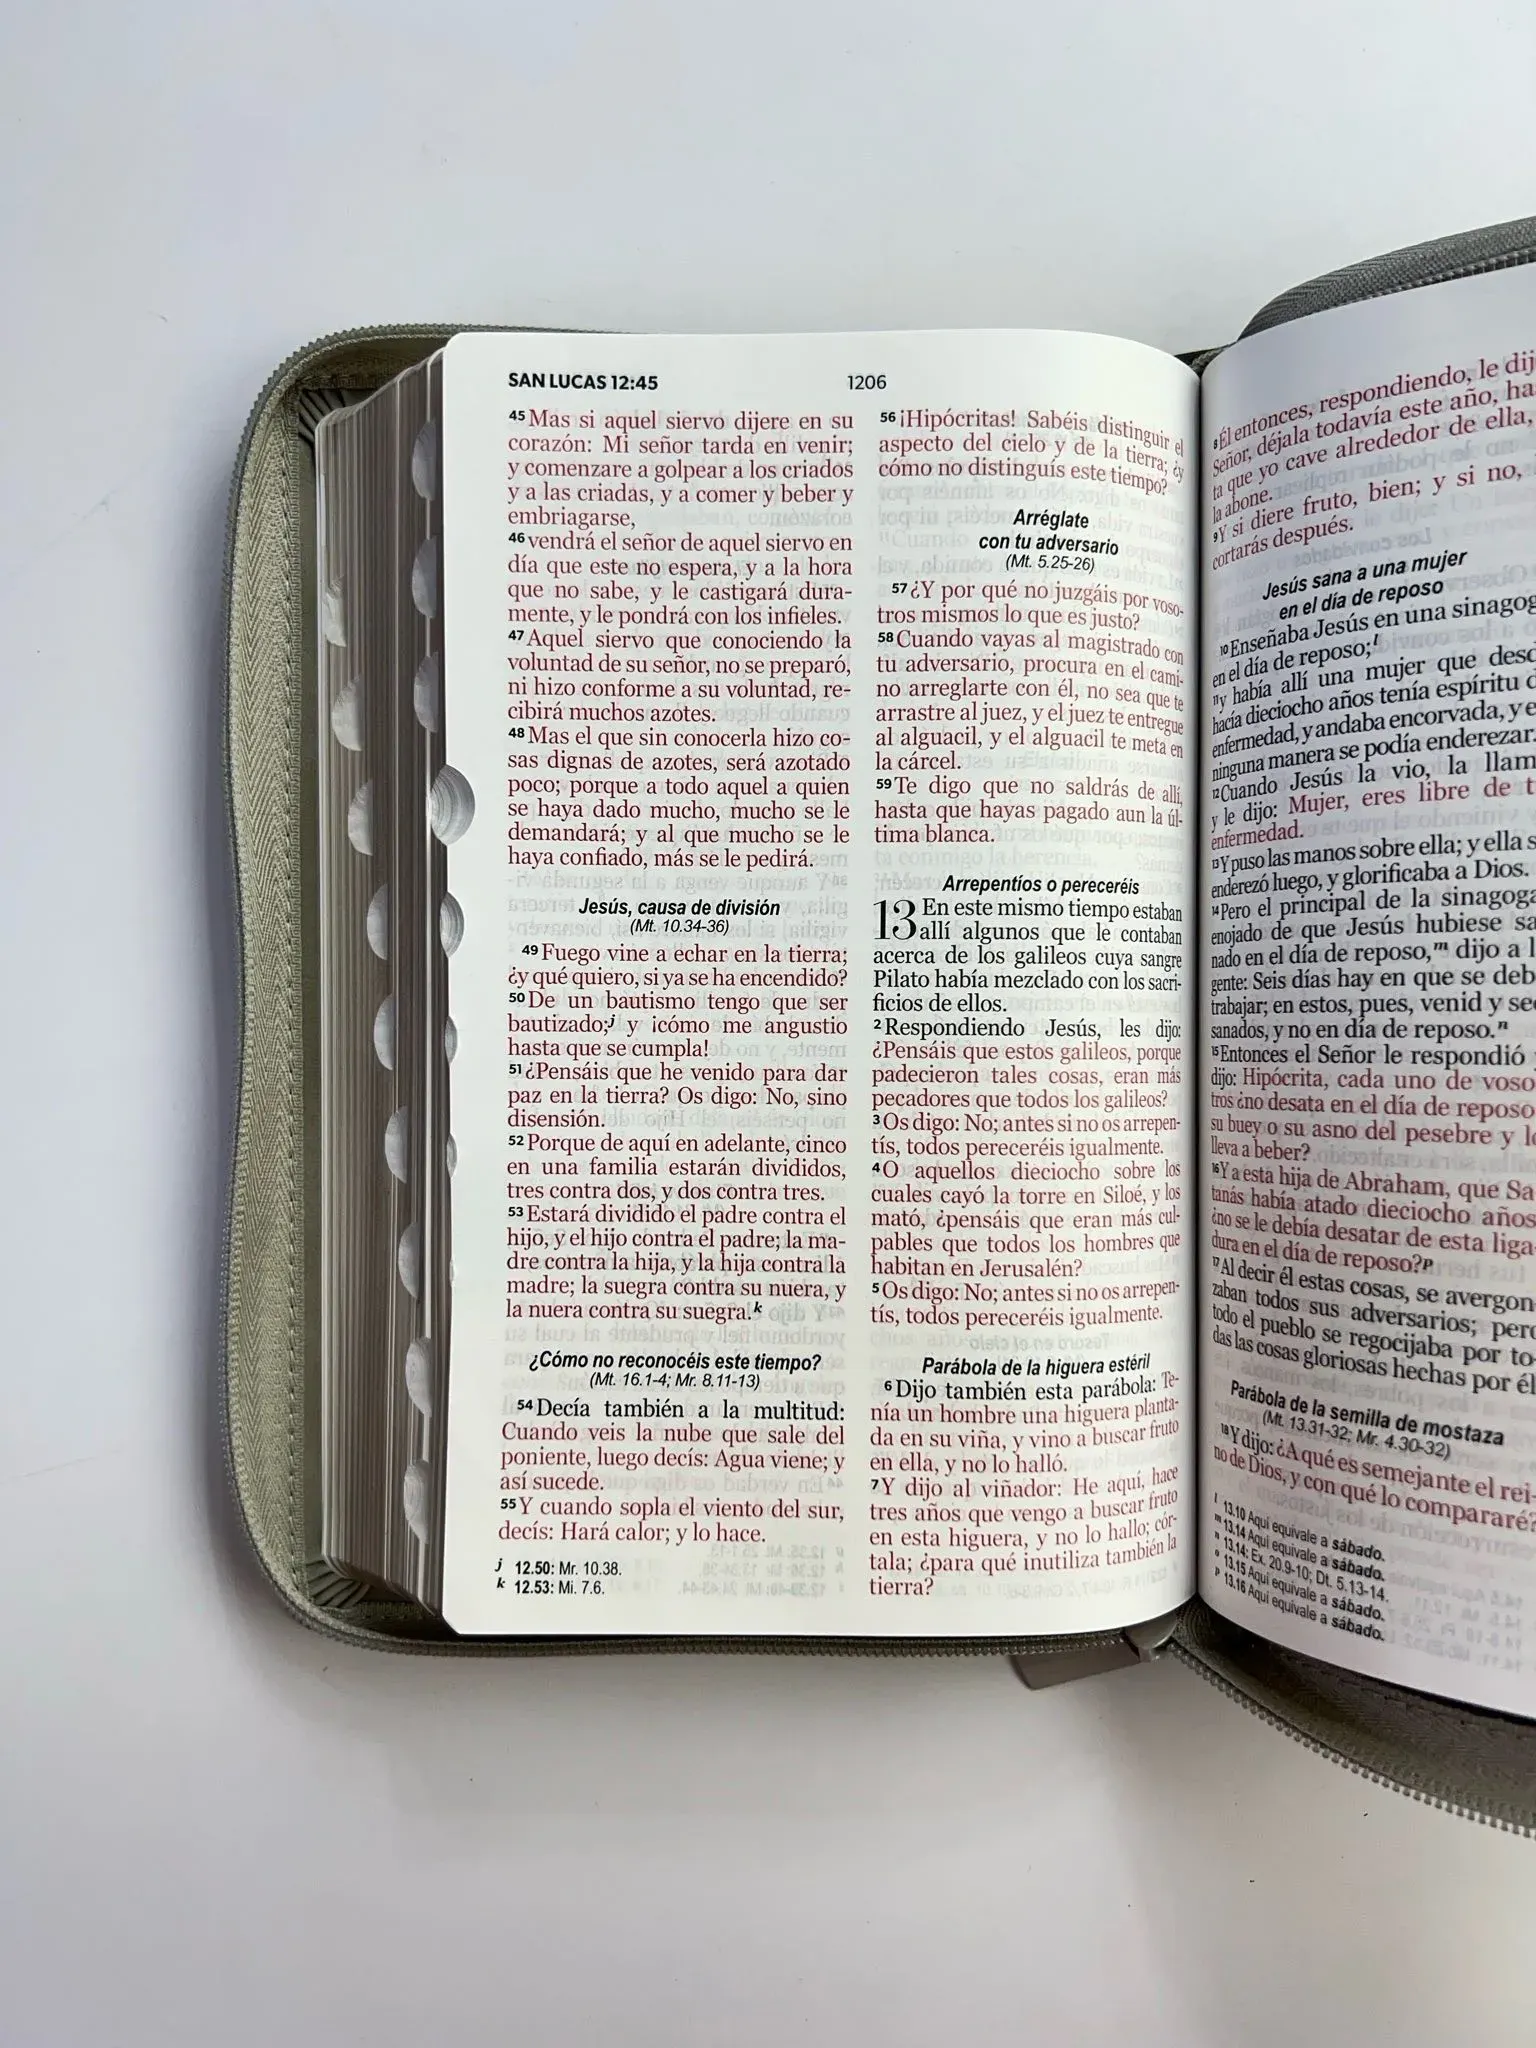 SAN LUCAS 12:45
1206
45 Mas si aquel siervo dijere en su
corazón: Mi señor tarda en venir;
y comenzare a golpear a los criados
y a las criadas, y a comer y beber y
embriagarse,
46 vendrá el señor de aquel siervo en
día que este no espera, y a la hora
que no sabe, y le castigará dura-
mente, y le pondrá con los infieles.
47 Aquel siervo que conociendo la
voluntad de su señor, no se preparó,
ni hizo conforme a su voluntad, re-
cibirá muchos azotes.
48 Mas el que sin conocerla hizo co-
sas dignas de azotes, será azotado
poco; porque a todo aquel a quien
se haya dado mucho, mucho se le
demandará; y al que mucho se le
haya confiado, más se le pedirá.
Jesús, causa de división
(Mt. 10.34-36)
49 Fuego vine a echar en la tierra;
¿y qué quiero, si ya se ha encendido?
50 De un bautismo tengo que ser
bautizado;j y ¡cómo me angustio
hasta que se cumpla!
51 ¿Pensáis que he venido para dar
paz en la tierra? Os digo: No, sino
disensión.
52 Porque de aquí en adelante, cinco
en una familia estarán divididos,
tres contra dos, y dos contra tres.
53 Estará dividido el padre contra el
hijo, y el hijo contra el padre; la ma-
dre contra la hija, y la hija contra la
madre; la suegra contra su nuera, y
la nuera contra su suegra.k
¿Cómo no reconocéis este tiempo?
(Mt. 16.1-4; Mr. 8.11-13)
54 Decía también a la multitud:
Cuando veis la nube que sale del
poniente, luego decís: Agua viene; y
así sucede.
55 Y cuando sopla el viento del sur,
decís: Hará calor; y lo hace.
j 12.50: Mr. 10.38.
k 12.53: Mi. 7.6.
56 ¡Hipócritas! Sabéis distinguir el
aspecto del cielo y de la tierra; ¿y
cómo no distinguís este tiempo?
Arréglate
con tu adversario
(Mt. 5.25-26)
57 ¿Y por qué no juzgáis por voso-
tros mismos lo que es justo?
58 Cuando vayas al magistrado con
tu adversario, procura en el cami-
no arreglarte con él, no sea que te
arrastre al juez, y el juez te entregue
al alguacil, y el alguacil te meta en
la cárcel.
59 Te digo que no saldrás de allí,
hasta que hayas pagado aun la úl-
tima blanca.
Arrepentíos o pereceréis
13 En este mismo tiempo estaban
allí algunos que le contaban
acerca de los galileos cuya sangre
Pilato había mezclado con los sacri-
ficios de ellos.
2 Respondiendo Jesús, les dijo:
¿Pensáis que estos galileos, porque
padecieron tales cosas, eran más
pecadores que todos los galileos?
3 Os digo: No; antes si no os arrepen-
tís, todos pereceréis igualmente.
4 O aquellos dieciocho sobre los
cuales cayó la torre en Siloé, y los
mató, ¿pensáis que eran más cul-
pables que todos los hombres que
habitan en Jerusalén?
5 Os digo: No; antes si no os arrepen-
tís, todos pereceréis igualmente.
Parábola de la higuera estéril
6 Dijo también esta parábola: Te-
nía un hombre una higuera planta-
da en su viña, y vino a buscar fruto
en ella, y no lo halló.
7 Y dijo al viñador: He aquí, hace
tres años que vengo a buscar fruto
en esta higuera, y no lo hallo; cór-
tala; ¿para qué inutiliza también la
tierra?
8 Él entonces, respondiendo, le dij
Señor, déjala todavía este año, ha
ta que yo cave alrededor de ella,
la abone.
9 Y si diere fruto, bien; y si no,
cortarás después.
Jesús sana a una mujer
en el día de reposo
10 Enseñaba Jesús en una sinagog
en el día de reposo;l
11 y había allí una mujer que desd
hacía dieciocho años tenía espíritu d
enfermedad, y andaba encorvada, y e
ninguna manera se podía enderezar.
12 Cuando Jesús la vio, la llam
y le dijo: Mujer, eres libre de t
enfermedad.
13 Y puso las manos sobre ella; y ella s
enderezó luego, y glorificaba a Dios.
14 Pero el principal de la sinagoga
enojado de que Jesús hubiese sa
nado en el día de reposo,m dijo a l
gente: Seis días hay en que se deb
trabajar; en estos, pues, venid y se
sanados, y no en día de reposo.n
15 Entonces el Señor le respondió
dijo: Hipócrita, cada uno de voso
tros ¿no desata en el día de reposo
su buey o su asno del pesebre y lo
lleva a beber?
16 Y a esta hija de Abraham, que Sa
tanás había atado dieciocho años
¿no se le debía desatar de esta liga-
dura en el día de reposo?p
17 Al decir él estas cosas, se avergon-
zaban todos sus adversarios; pero
todo el pueblo se regocijaba por to-
das las cosas gloriosas hechas por él
Parábola de la semilla de mostaza
(Mt. 13.31-32; Mr. 4.30-32)
18 Y dijo: ¿A qué es semejante el rei-
no de Dios, y con qué lo compararé?
l 13.10 Aquí equivale a sábado.
m 13.14 Aquí equivale a sábado.
n 13.14: Ex. 20.9-10; Dt. 5.13-14.
o 13.15 Aquí equivale a sábado.
p 13.16 Aquí equivale a sábado.